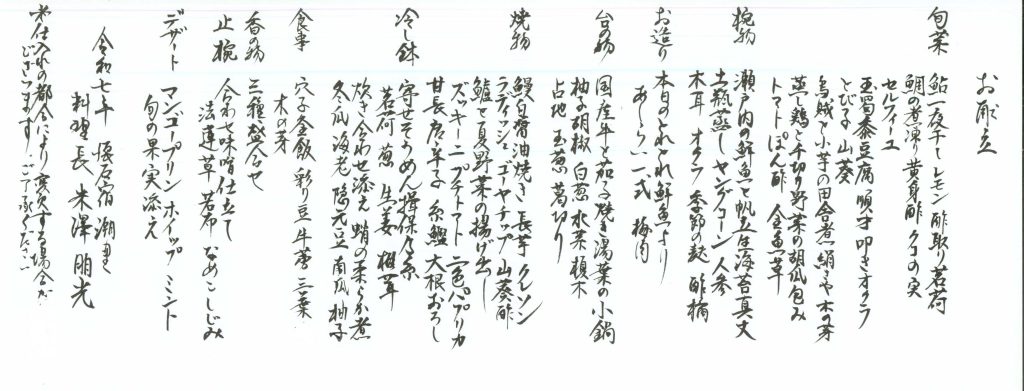 お献立
旬菜
鮎一夜干し レモン 酢取り茗荷
鯛の煮凍り 黄身酢 クコの実
セルフィーユ
玉蜀黍豆腐 順才 叩きオクラ
とびこ 山葵
烏賊と小芋の田舎煮 絹さや 木の芽
蒸し鶏と千切り野菜の胡瓜包み
トマトぽん酢 金魚草
椀物
瀬戸内の鮮魚と帆立は海苔真丈
土瓶蒸し ヤングコーン 人参
木耳 オクラ 季節の麸 酢橘
お造り
本日のとれとれ鮮魚より
あしらい一式 梅肉
台の物
国産牛と茄子 焼き湯葉の小鍋
柚子胡椒 白葱 水菜 榎木
占地 玉葱 葛切り
焼物
鰻白醤油焼き 長芋 クレソン
ラディッシュ ゴーヤチップ 山葵酢
鱸と夏野菜の揚げ出し
ズッキーニ プチトマト 二色パプリカ
甘長唐辛子 糸鰹 大根おろし
冷し鉢
寄せそうめん 揖保乃糸
茗荷 葱 生姜 椎茸
炊き合わせ添え 蛸の柔らか煮
冬瓜 海老 隠元豆 南瓜 柚子
食事
穴子釜飯 彩り豆 牛蒡 三葉
木の芽
香の物
三種盛合せ
止椀
合わせ味噌仕立て
法蓮草 若布 なめこ しじみ
デザート
マンゴープリン ホイップ ミント
旬の果実添え
令和七年 懐石宿 潮里
料理長 米澤 朋光
※仕入れの都合により変更する場合が
ございます。ご了承ください